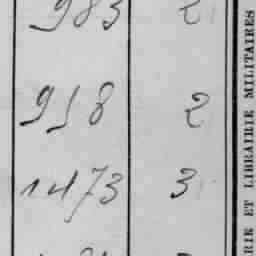 983 2
958 2
1473 3
RIE ET LIBRAIRIE MILITAIRES